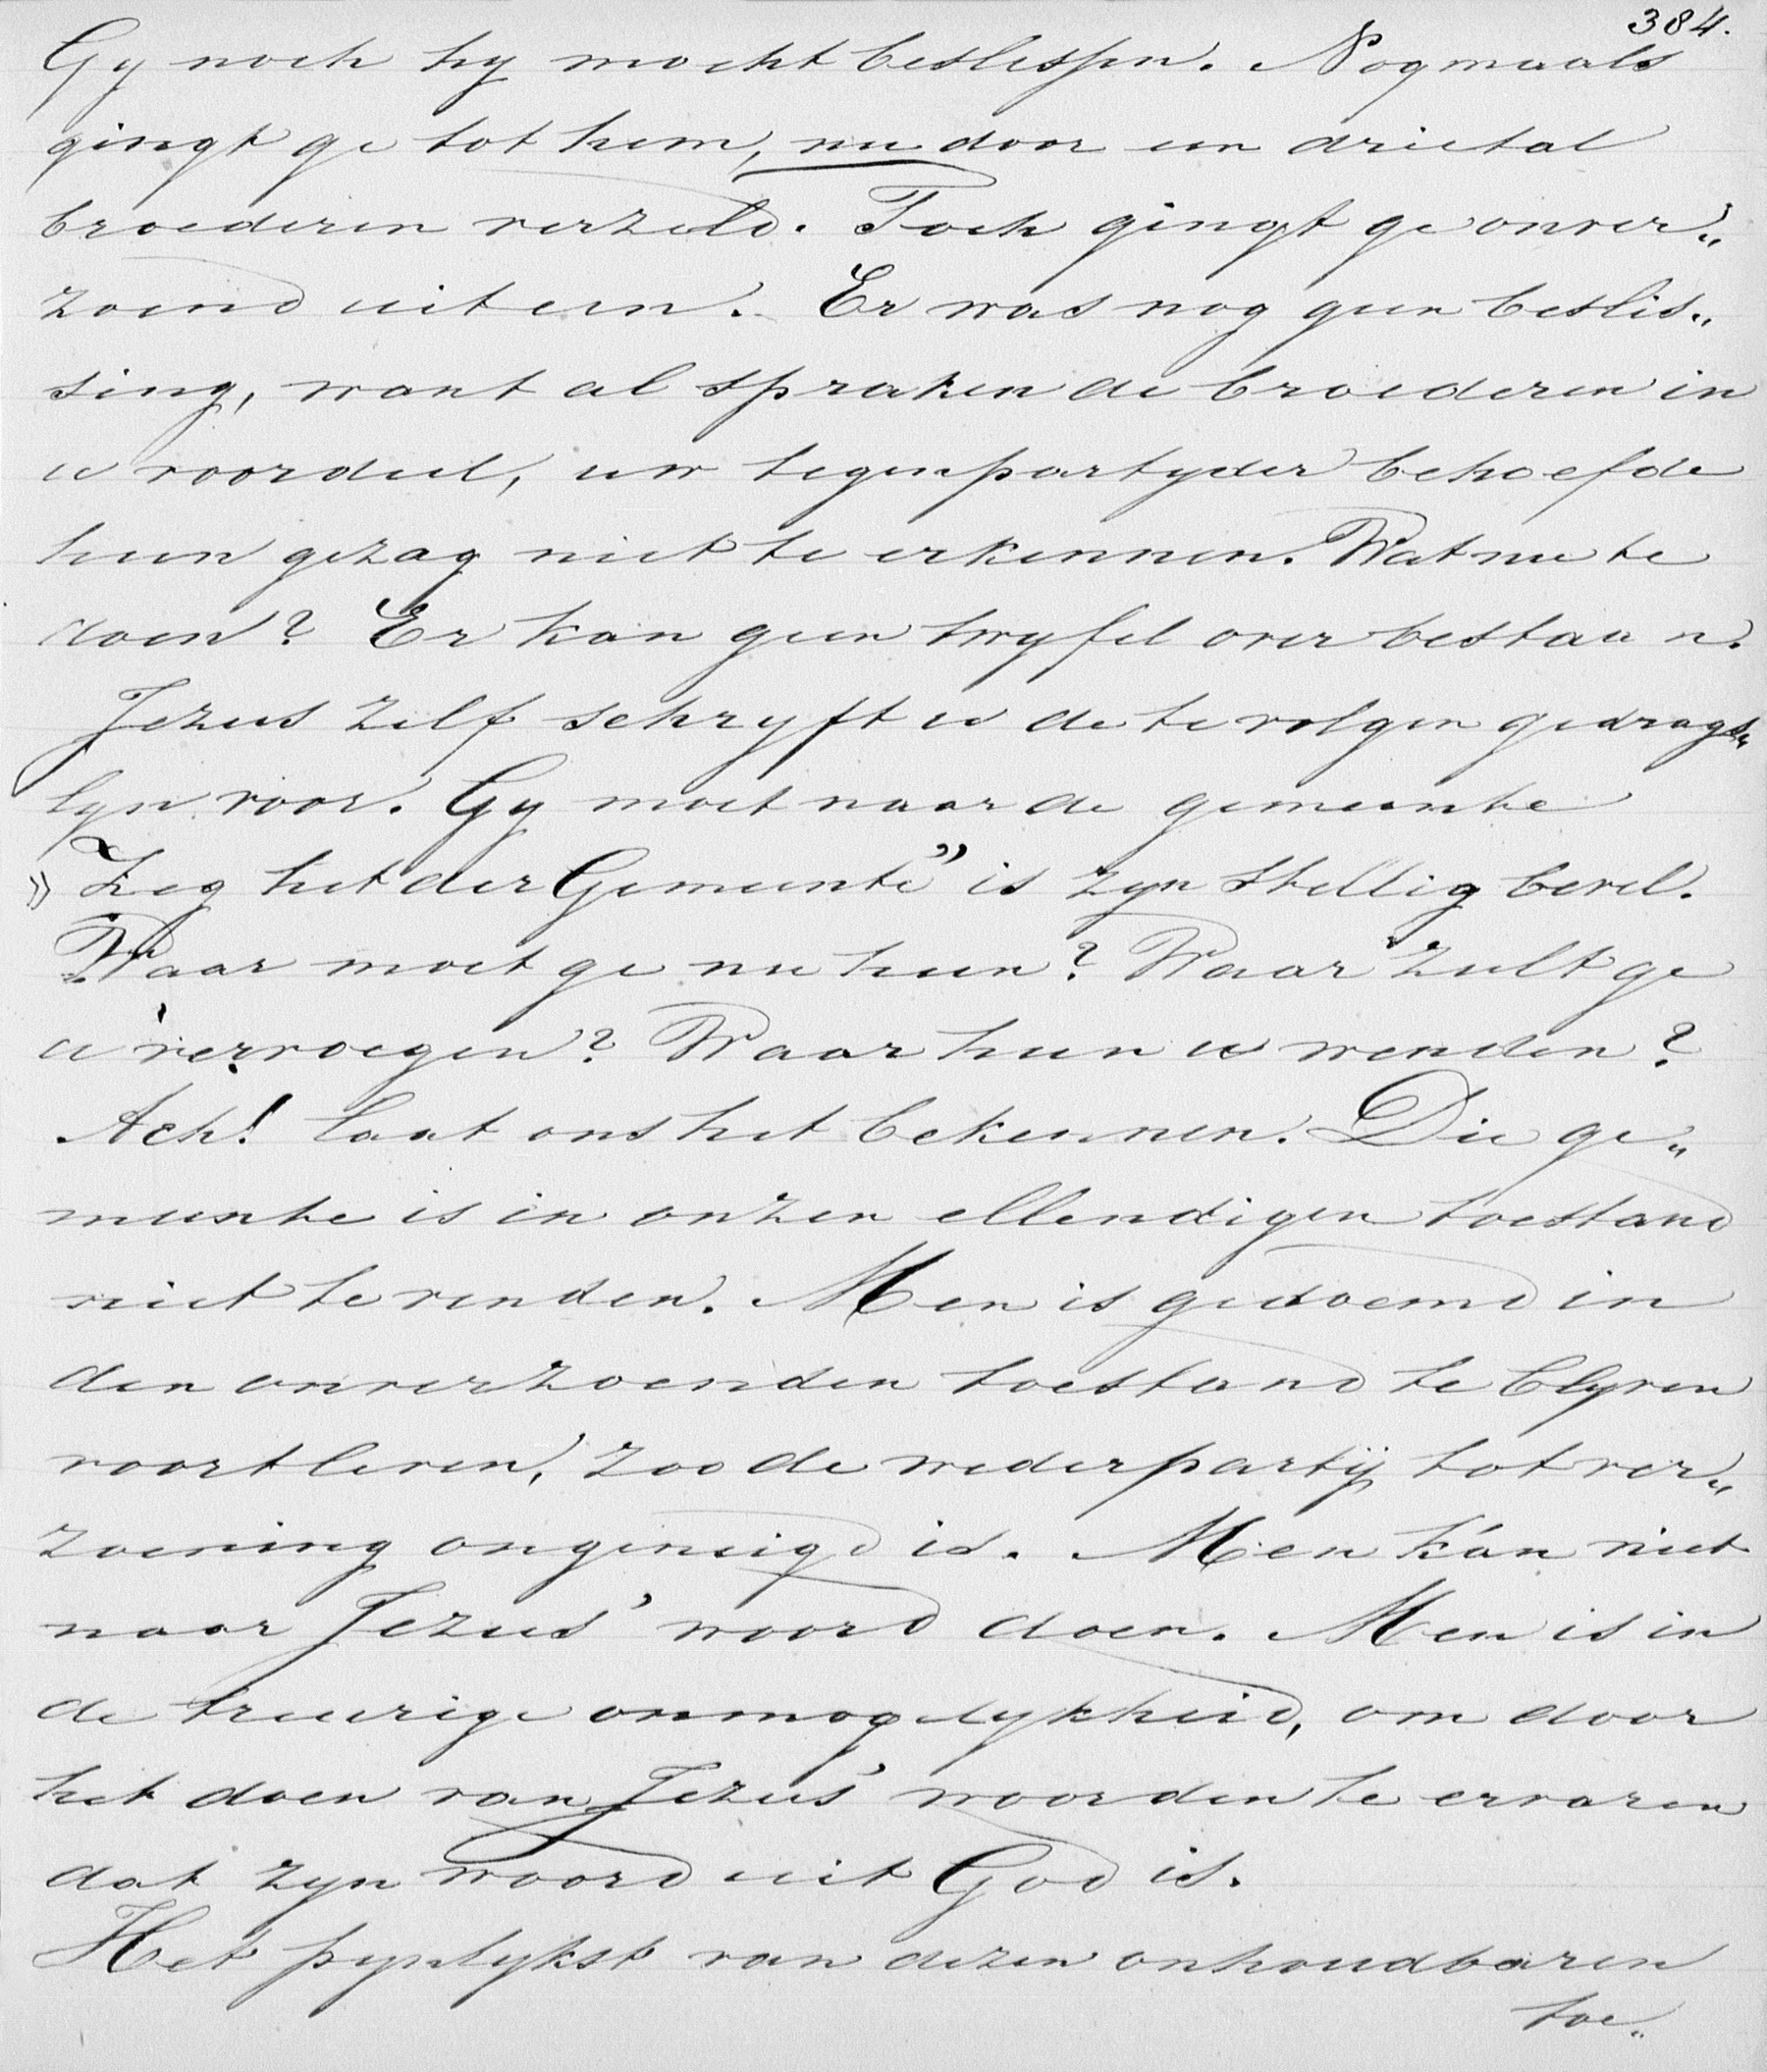 384.
Gy noch hy mocht beslissen. Nogmaals
gingt ge tot hem, nu door een drietal
broederen verzeld. Toch gingt ge onver„
zoend uiteen. Er was nog geen beslis„
sing, want al spraken de broederen in
u voordeel, uw tegenpartyder behoefde
hun gezag niet te erkennen. Wat nu te
doen? Er kan geen twyfel over bestaan.
Jezus zelf schryft u de te volgen gedrags„
lyn voor. Gy moet naar de gemeente
„Zeg het der Gemeente” is zyn stellig bevel.
Waar moet ge nu heen? Waar zult ge
u vervoegen? Waar heen u wenden?
Ach! laat ons het bekennen. Die ge„
meente is in onzen ellendigen toestand
niet te vinden. Men is gedoemd in
den onverzoenden toestand te blyven
voortleven, zoo de wederpartij tot ver„
zoening ongeneigd is. Men kán niet
naar Jezus' woord doen. Men is in
de treurige onmogelykheid, om door
het doen van Jezus' woorden te ervaren
dat zyn woord uit God is.
Het pynlykst van dezen onhoudbaren
toe„